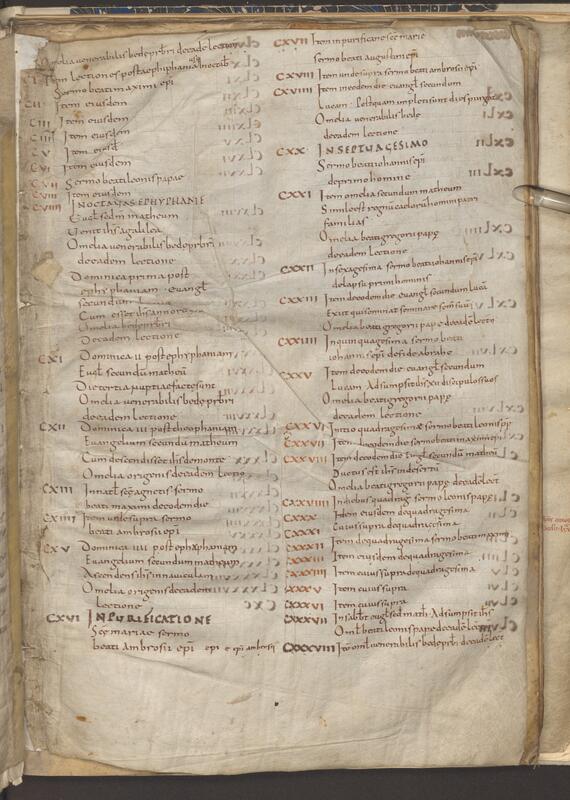 Omelia venerabilis bede prbri de eade lectione
Item lectiones post aephiphania
Sermo beati maximi epi
CII Item eiusdem
CIII Item eiusdem
CIIII Item eiusdem
CV Item eiusd
CVI Item eiusdem
CVII Sermo beati leonis papae
CVIII Item eiusdem
CVIIII IN OCTABAS EPHYPHANIE
Eugl sedm matheum
Venit ihs a galilea
Omelia venerabilis bede prbri
de eadem lectione
Dominica prima post
ephyphaniam evangl
secundum
Cum esset ihs annorum
Omelia bede prbri
De eadem lectione
CXI Dominica II post ephyphaniam
Eugl secundu matheu
Die tertia nuptiae factae sunt
Omelia venerabilis bede prbri
de eadem lectione
CXII Dominica III post theophaniam
Evangelium secundu matheum
Cum descendisset ihs de monte
Omelia origenis de eadem lectio
CXIII In natl sce agnetis sermo
beati maximi de eodem die
CXIIII Item unde supra sermo
beati ambrosii epi
CXV Dominica IIII post ephyphaniam
Evangelium secundum matheum
Ascendens ihs in navicula
Omelia origenis de eadem
Lectione
CXVI IN PURIFICATIONE
Sce mariae sermo
beati ambrosii epi
CXVII Item in purificatione sce marie
sermo beati augustini epi
CXVIII Item unde supra sermo beati ambrosii epi
CXVIIII Item in eodem die evangl secundum
Lucam Postquam impleti sunt dies purga
Omelia venerabilis bede
de eadem lectione
CXX IN SEPTUAGESIMO
Sermo beati iohannis epi
de primo homine
CXXI Item omelia secundum matheum
Simile est regnu caeloru homini patri
familias
Omelia beati gregorii pape
de eadem lectione
CXXII In sexagesima sermo beati iohannis epi
de lapsu primi hominis
CXXIII Item de eodem die evangl secundum lucā
Exiit qui seminat seminare semen suu
Omelia beati gregorii pape de eade lectio
CXXIIII In quinquagesima sermo beati
iohannis epi de fide abrahe
CXXV Item de eodem die evangl secundum
Lucam Adsumpsit ihs XII discipulos suos
Omelia beati gregorii pape
de eadem lectione
CXXVI Initio quadragesimae sermo beati leonis pp
CXXVII Item de eodem die sermo beati maximi epi
CXXVIII Item de eodem die Eugl secundu matheu
Ductus est ihs in desertu
Omelia beati gregorii pape de eade lect
CXXVIIII In diebus quadrag sermo leonis pape
CXXX Item eiusdem de quadragesima
CXXXI Cuius supra de quadracissima
CXXXII Item de quadragesima sermo beati maximi
CXXXIII Item eiusdem de quadragesima
CXXXIIII Item cuius supra de quadragesima
CXXXV Item cuius supra
CXXXVI Item cuius supra
CXXXVII In sabbt eugl sed math Adsumpsit ihs
Oml beati leonis pape de eade lect
CXXXVIII Ite oml venerabilis bede prbri de eade lect